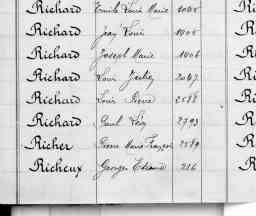 Richard Emile Louis Marie 1045
Richard Jean Louis 1005
Richard Joseph Marie 1006
Richard Louis 2047
Richard Louis Pierre 2588
Richard Paul Léon 2793
Richer Pierre Marie François 2589
Richeux Georges Edmond 226